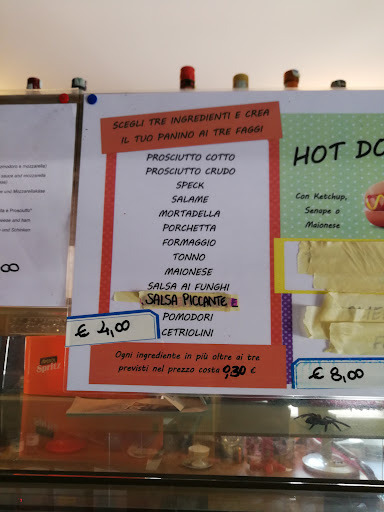 SCEGLI TRE INGREDIENTI E CREA
IL TUO PANINO AI TRE FAGGI
PROSCIUTTO COTTO
PROSCIUTTO CRUDO
SPECK
SALAME
MORTADELLA
PORCHETTA
FORMAGGIO
TONNO
MAIONESE
SALSA AI FUNGHI
SALSA PICCANTE
POMODORI
CETRIOLINI
€ 4,00
Ogni ingrediente in più oltre ai tre
previsti nel prezzo costa 0,30 €
HOT DO
Con Ketchup,
Senape o
Maionese
€ 8,00
Spritz